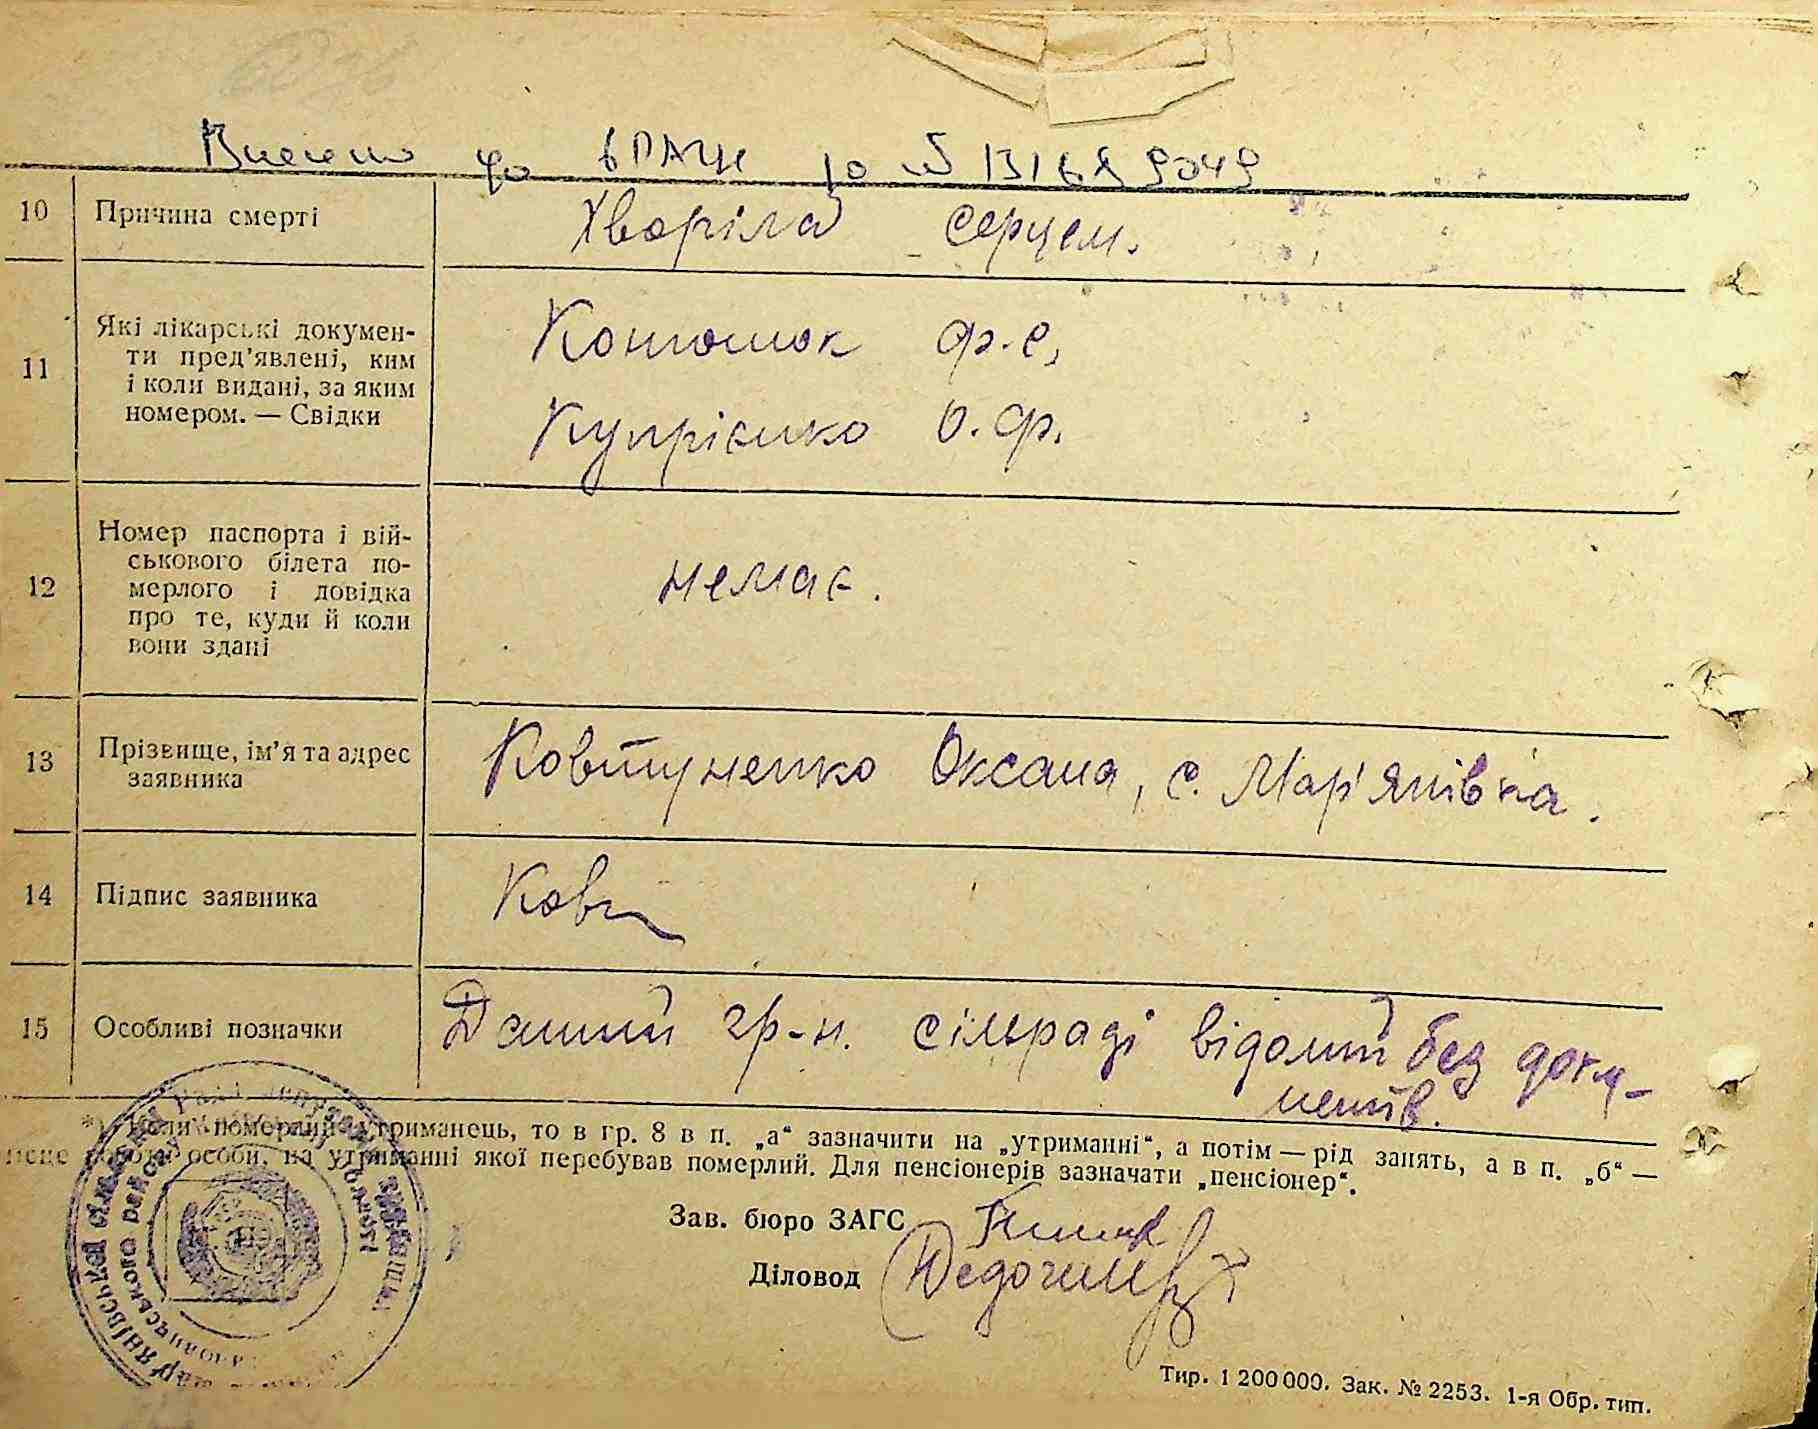 Внесено до ЕРАЦС
10 Причина смерті Хворіла серцем.
11 Які лікарські докумен-
ти пред'явлені, ким
і коли видані, за яким
номером. — Свідки
Ф. Є,
Купрієнко О. Ф.
12 Номер паспорта і вій-
ськового білета по-
мерлого і довідка
про те, куди й коли
вони здані
немає.
13 Прізвище, ім'я та адрес
заявника
Ковтуненко Оксана, с. Мар'янівка.
14 Підпис заявника Ковт
15 Особливі позначки Даний гр-н. сільраді відомий без доку-
ментів.
*) Коли померлий утриманець, то в гр. 8 в п. „а“ зазначити на „утриманні“, а потім — рід занять, а в п. „б“ —
місце роботи особи, на утриманні якої перебував померлий. Для пенсіонерів зазначати „пенсіонер“.
Зав. бюро ЗАГС
Діловод
Тир. 1 200 000. Зак. № 2253. 1-я Обр. тип.